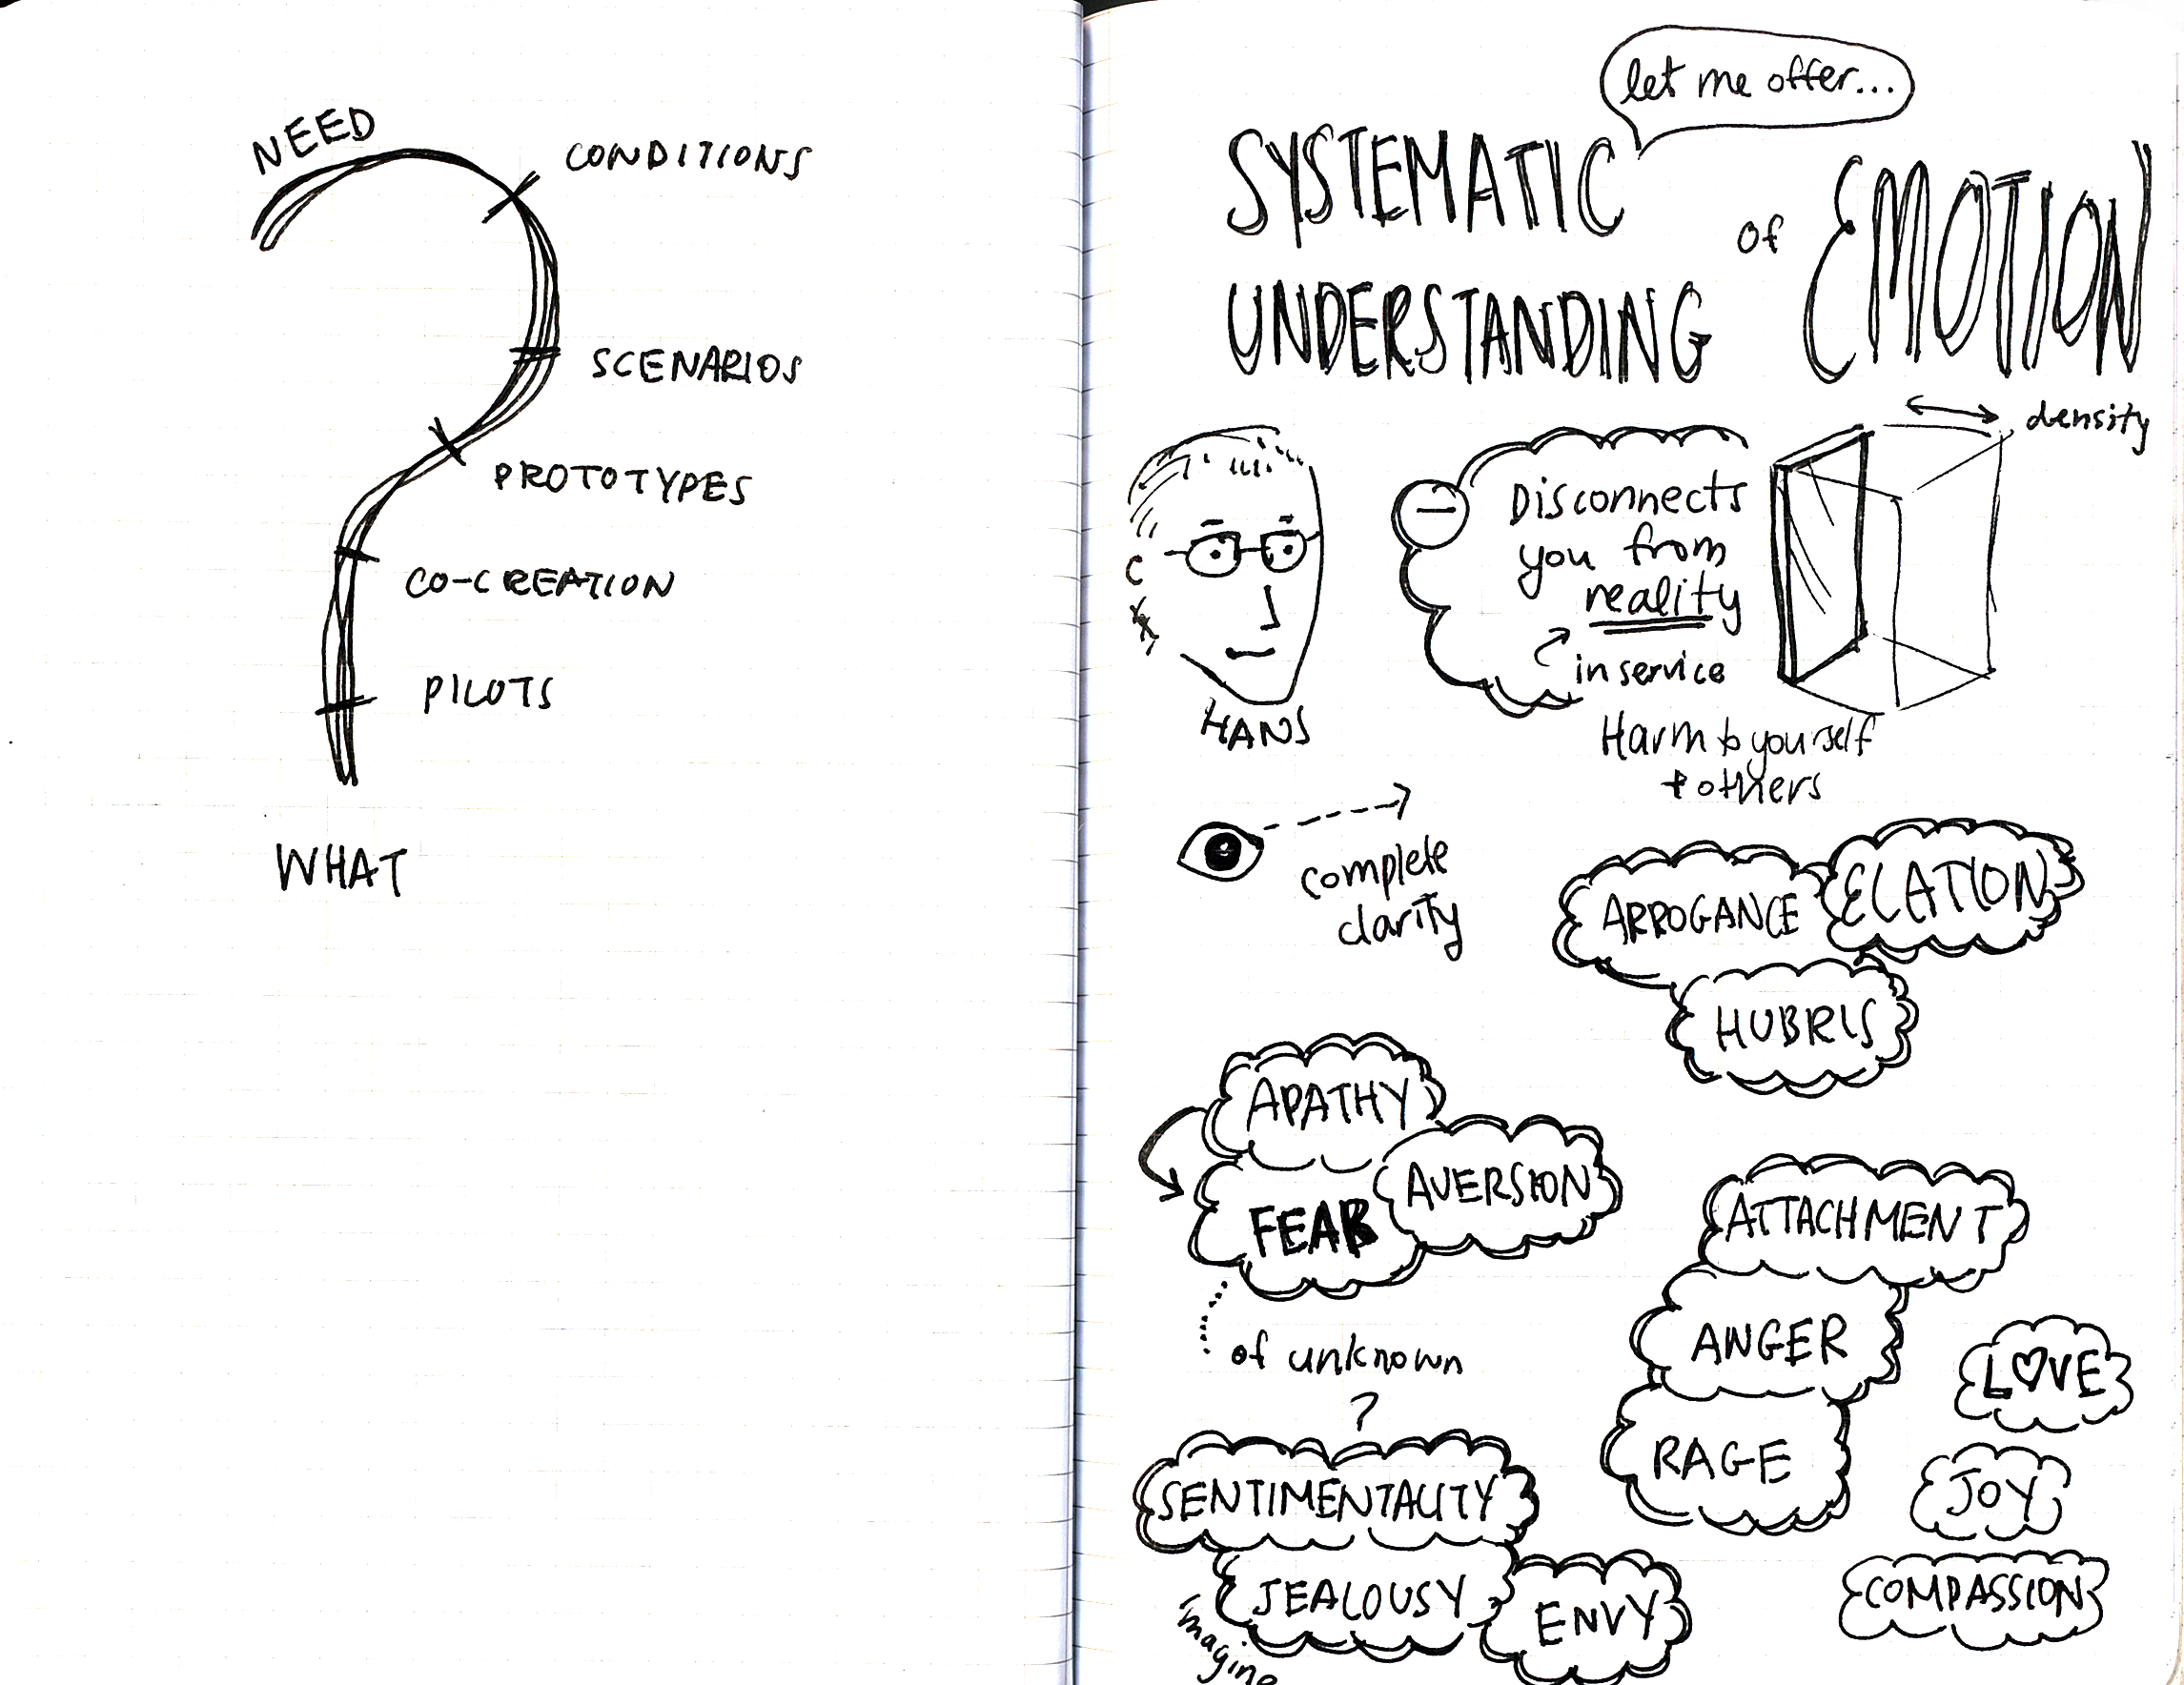 NEED
CONDITIONS
SCENARIOS
PROTOTYPES
CO-CREATION
PILOTS
WHAT
let me offer...
SYSTEMATIC
UNDERSTANDING
of
EMOTION
density
Disconnects
you from
reality
in service
HANS
Harm to yourself
+ others
complete
clarity
ARROGANCE
ELATION
HUBRIS
APATHY
AVERSION
FEAR
of unknown
?
ATTACHMENT
ANGER
RAGE
LOVE
JOY
COMPASSION
SENTIMENTALITY
JEALOUSY
ENVY
imagine